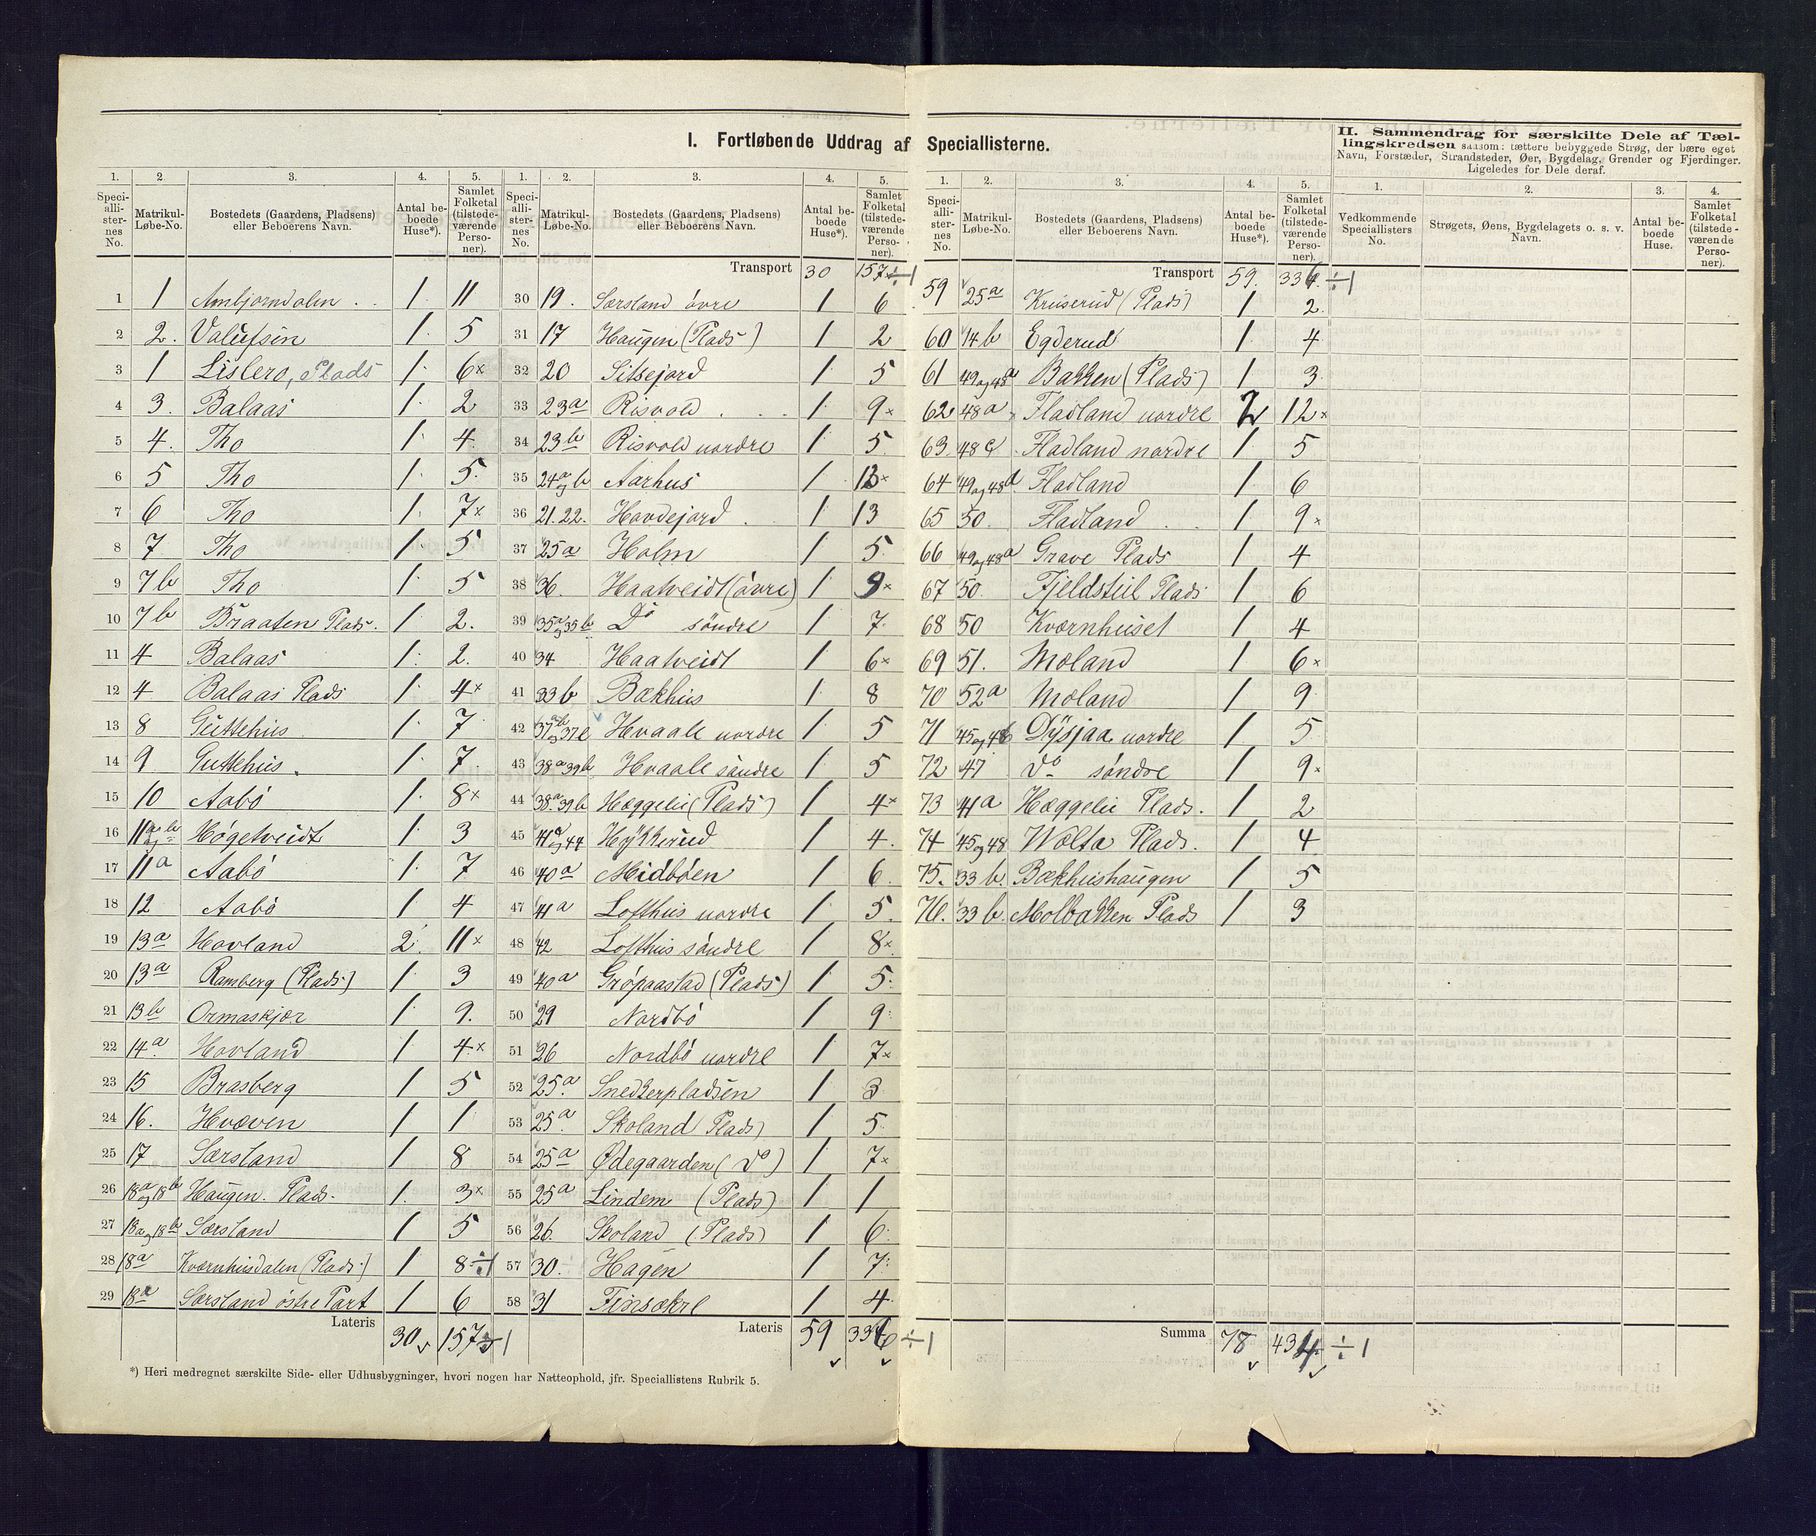 I. Fortløbende Uddrag af Speciallisterne.
1. 2. 3. 4. 5.
Speciallisternes No. Matrikul-Løbe-No. Bostedets (Gaardens, Pladsens) eller Beboerens Navn. Antal beboede Huse*). Samlet Folketal (tilstedeværende Personer).
1 1 Ambjorndalen . . 1 11
2 2. Valufsin 1 5
3 1 Lislero, Plads 1 6x
4 3. Balaas 1 2
5 4. Tho 1 4
6 5 Tho 1 5.
7 6 Tho 1 7x
8 7 Tho 1 5
9 7b Tho 1 5
10 7b Braaten Plads. 1 2.
11 4 Balaas 1 2.
12 4 Balaas Plads 1 4x
13 8 Guttehus 1 7
14 9 Guttehus. 1 7.
15 10 Aabö 1 8x
16 11a og b Høgetveidt 1 3
17 11a Aabö 1 7
18 12 Aabö 1 4
19 13a Hovland 2 11x
20 13a Ramberg (Plads) 1 3
21 13b Ormaskjær 1 9.
22 14a. Hovland 1 4x
23 15 Brasberg 1 5
24 16. Hvæven 1 1
25 17 Særsland 1 8
26 18a og 18b Haugen. Plads. 1 3x
27 18a og 18b Særsland 1 5
28 18a Kværnhusdalen (Plads) 1 8÷1
29 18a Særsland östre Part 1 6
Lateris 30 157÷1
*) Heri medregnet særskilte Side- eller Udhusbygninger, hvori nogen har Natteophold, jfr. Speciallistens Rubrik 5.
1. 2. 3. 4. 5.
Speciallisternes No. Matrikul-Løbe-No. Bostedets (Gaardens, Pladsens) eller Beboerens Navn. Antal beboede Huse*). Samlet Folketal (tilstedeværende Personer).
Transport 30 157÷1
30 19. Særsland övre 1 6
31 17 Haugen (Plads) 1 2
32 20 Sitsejord 1 5
33 23a Risvold . . . 1 9x
34 23b Risvold nordre 1 5
35 24a og b Aarhus 1 13x
36 21.22. Hovdejord . 1 13
37 25a Holm 1 5.
38 36. Haatveidt (övre) 1 9x
39 35a og 35b Do söndre 1 7.
40 34 Haatveidt 1 6x
41 33b Bækhus 1 8
42 37ab og 37c Hvaale nordre 1 5
43 38a 39b Hvaale söndre 1 5
44 38a 39b Hæggelii (Plads) 1 4x
45 41d og 44 Høkkerud 1 4.
46 40a Midböen 1 6.
47 41a Lofthus nordre 1 5.
48 42 Lofthus söndre 1 8x
49 40a Gröpaastad (Plads) 1 5.
50 29 Nordbö 1 9
51 26 Nordbö nordre 1 7x
52 25.a Snedkerpladsen 1 3
53 25a. Skoland Plads 1 5
54 25a Ødegaarden (Do) 1 7x
55 25a Lindem (Plads) 1 1
56 26. Skoland (Plads) 1 6.
57 30. Hagen 1 7
58 31 Finsækre 1 4
Lateris 59 336÷1
1. 2. 3. 4. 5.
Speciallisternes No. Matrikul-Løbe-No. Bostedets (Gaardens, Pladsens) eller Beboerens Navn. Antal beboede Huse*). Samlet Folketal (tilstedeværende Personer).
Transport 59. 336÷1
59 25a Kruserud (Plads) 1 2.
60 14b Egderud 1 4
61 49 og 48a Bakken (Plads) 1 3
62 48a Fladland nordre 2 12x
63. 48c Fladland nordre 1 5
64 49 og 48d Fladland 1 6
65 50. Fladland . . 1 9x
66 49 og 48a Grave Plads 1 4
67 50. Fjeldstul Plads 1 6
68 50 Kværnhuset 1 4
69 51. Moland 1 6x
70 52a Moland 1 9
71 45 og 46 Dysjaa nordre 1 5
72 47 Do söndre 1 9x
73 41a Hæggelii Plads. 1 2
74 45 og 48 Wolta Plads. 1 4
75. 33b. Bækhushaugen 1 5
76. 33b. Molbakken Plads 1 3
Summa 78 434÷1
II. Sammendrag for særskilte Dele af Tællingskredsen saasom: tættere bebyggede Strøg, der bære eget Navn, Forstæder, Strandsteder, Øer, Bygdelag, Grender og Fjerdinger. Ligeledes for Dele deraf.
1. 2. 3. 4.
Vedkommende Speciallisters No. Strøgets, Øens, Bygdelagets o. s. v. Navn. Antal beboede Huse. Samlet Folketal (tilstedeværende Personer).